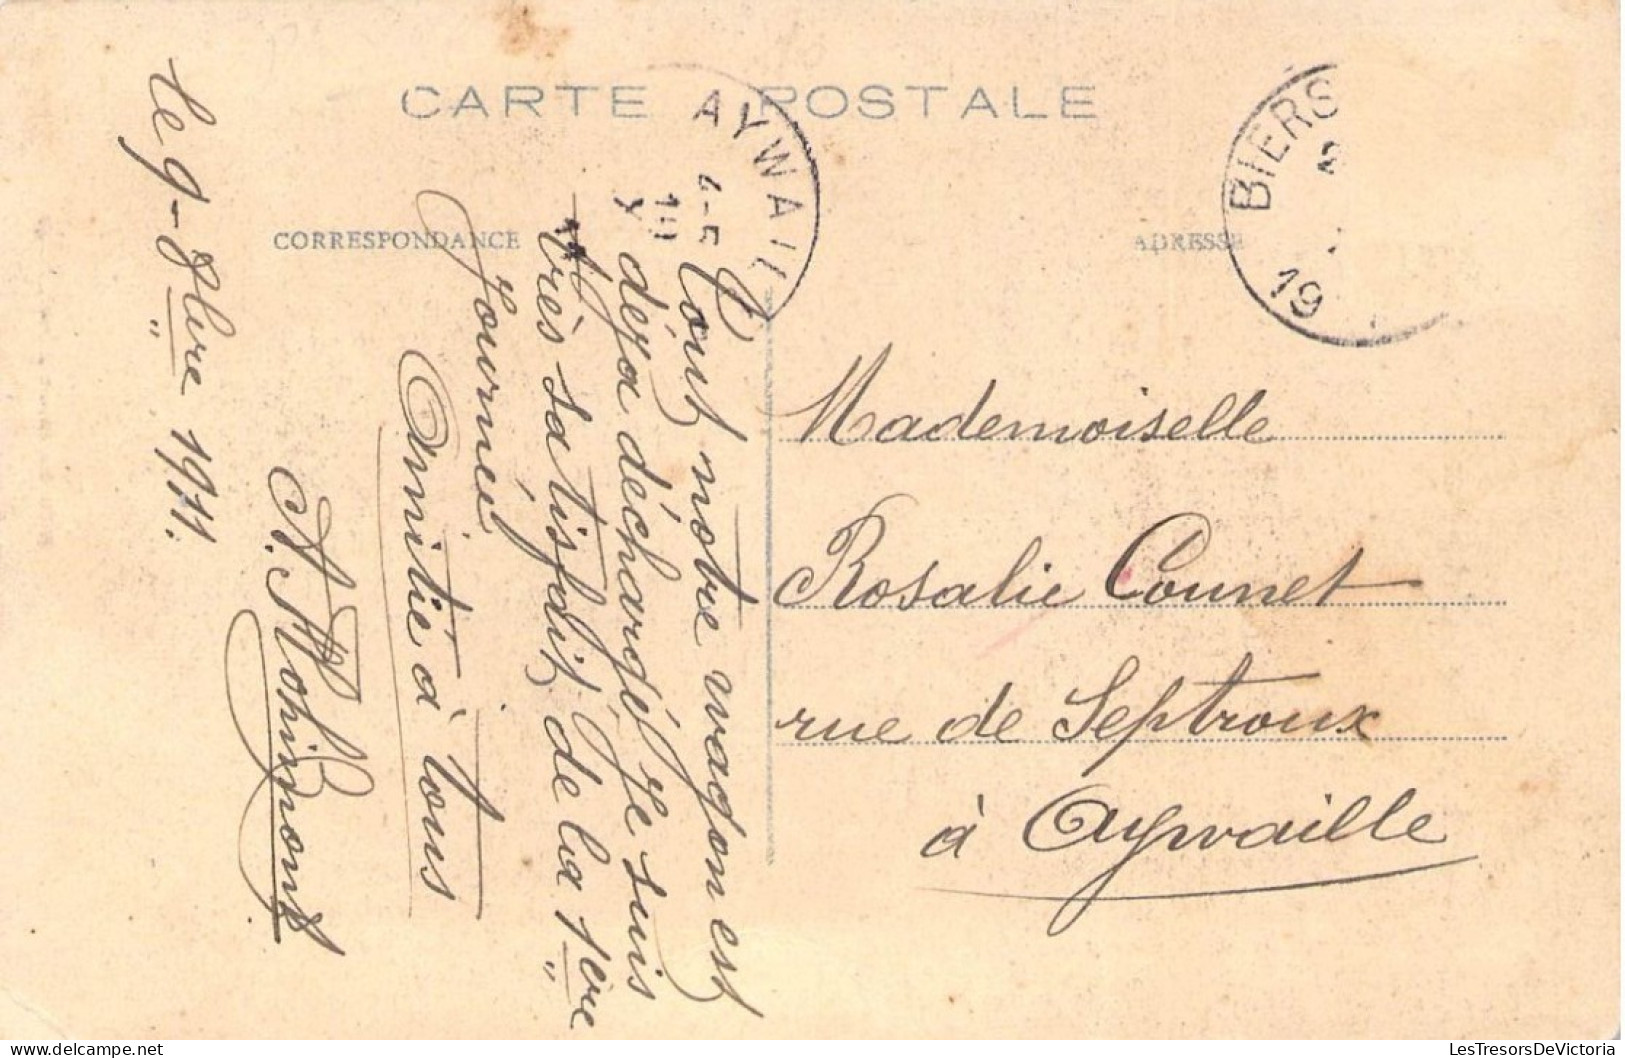 CARTE POSTALE
CORRESPONDANCE
ADRESSE
AYWAIL
4-5
10
X
BIERS
19
Le 9-8bre 1911.
Tout notre wagon est
déja déchargé, je suis
très satisfait de la 1ère
Journeé
Amitié à tous
A. Mohimont
Mademoiselle
Rosalie Counet
rue de Septroux
à Aywaille
LesTresorsDeVictoria
www.delcampe.net